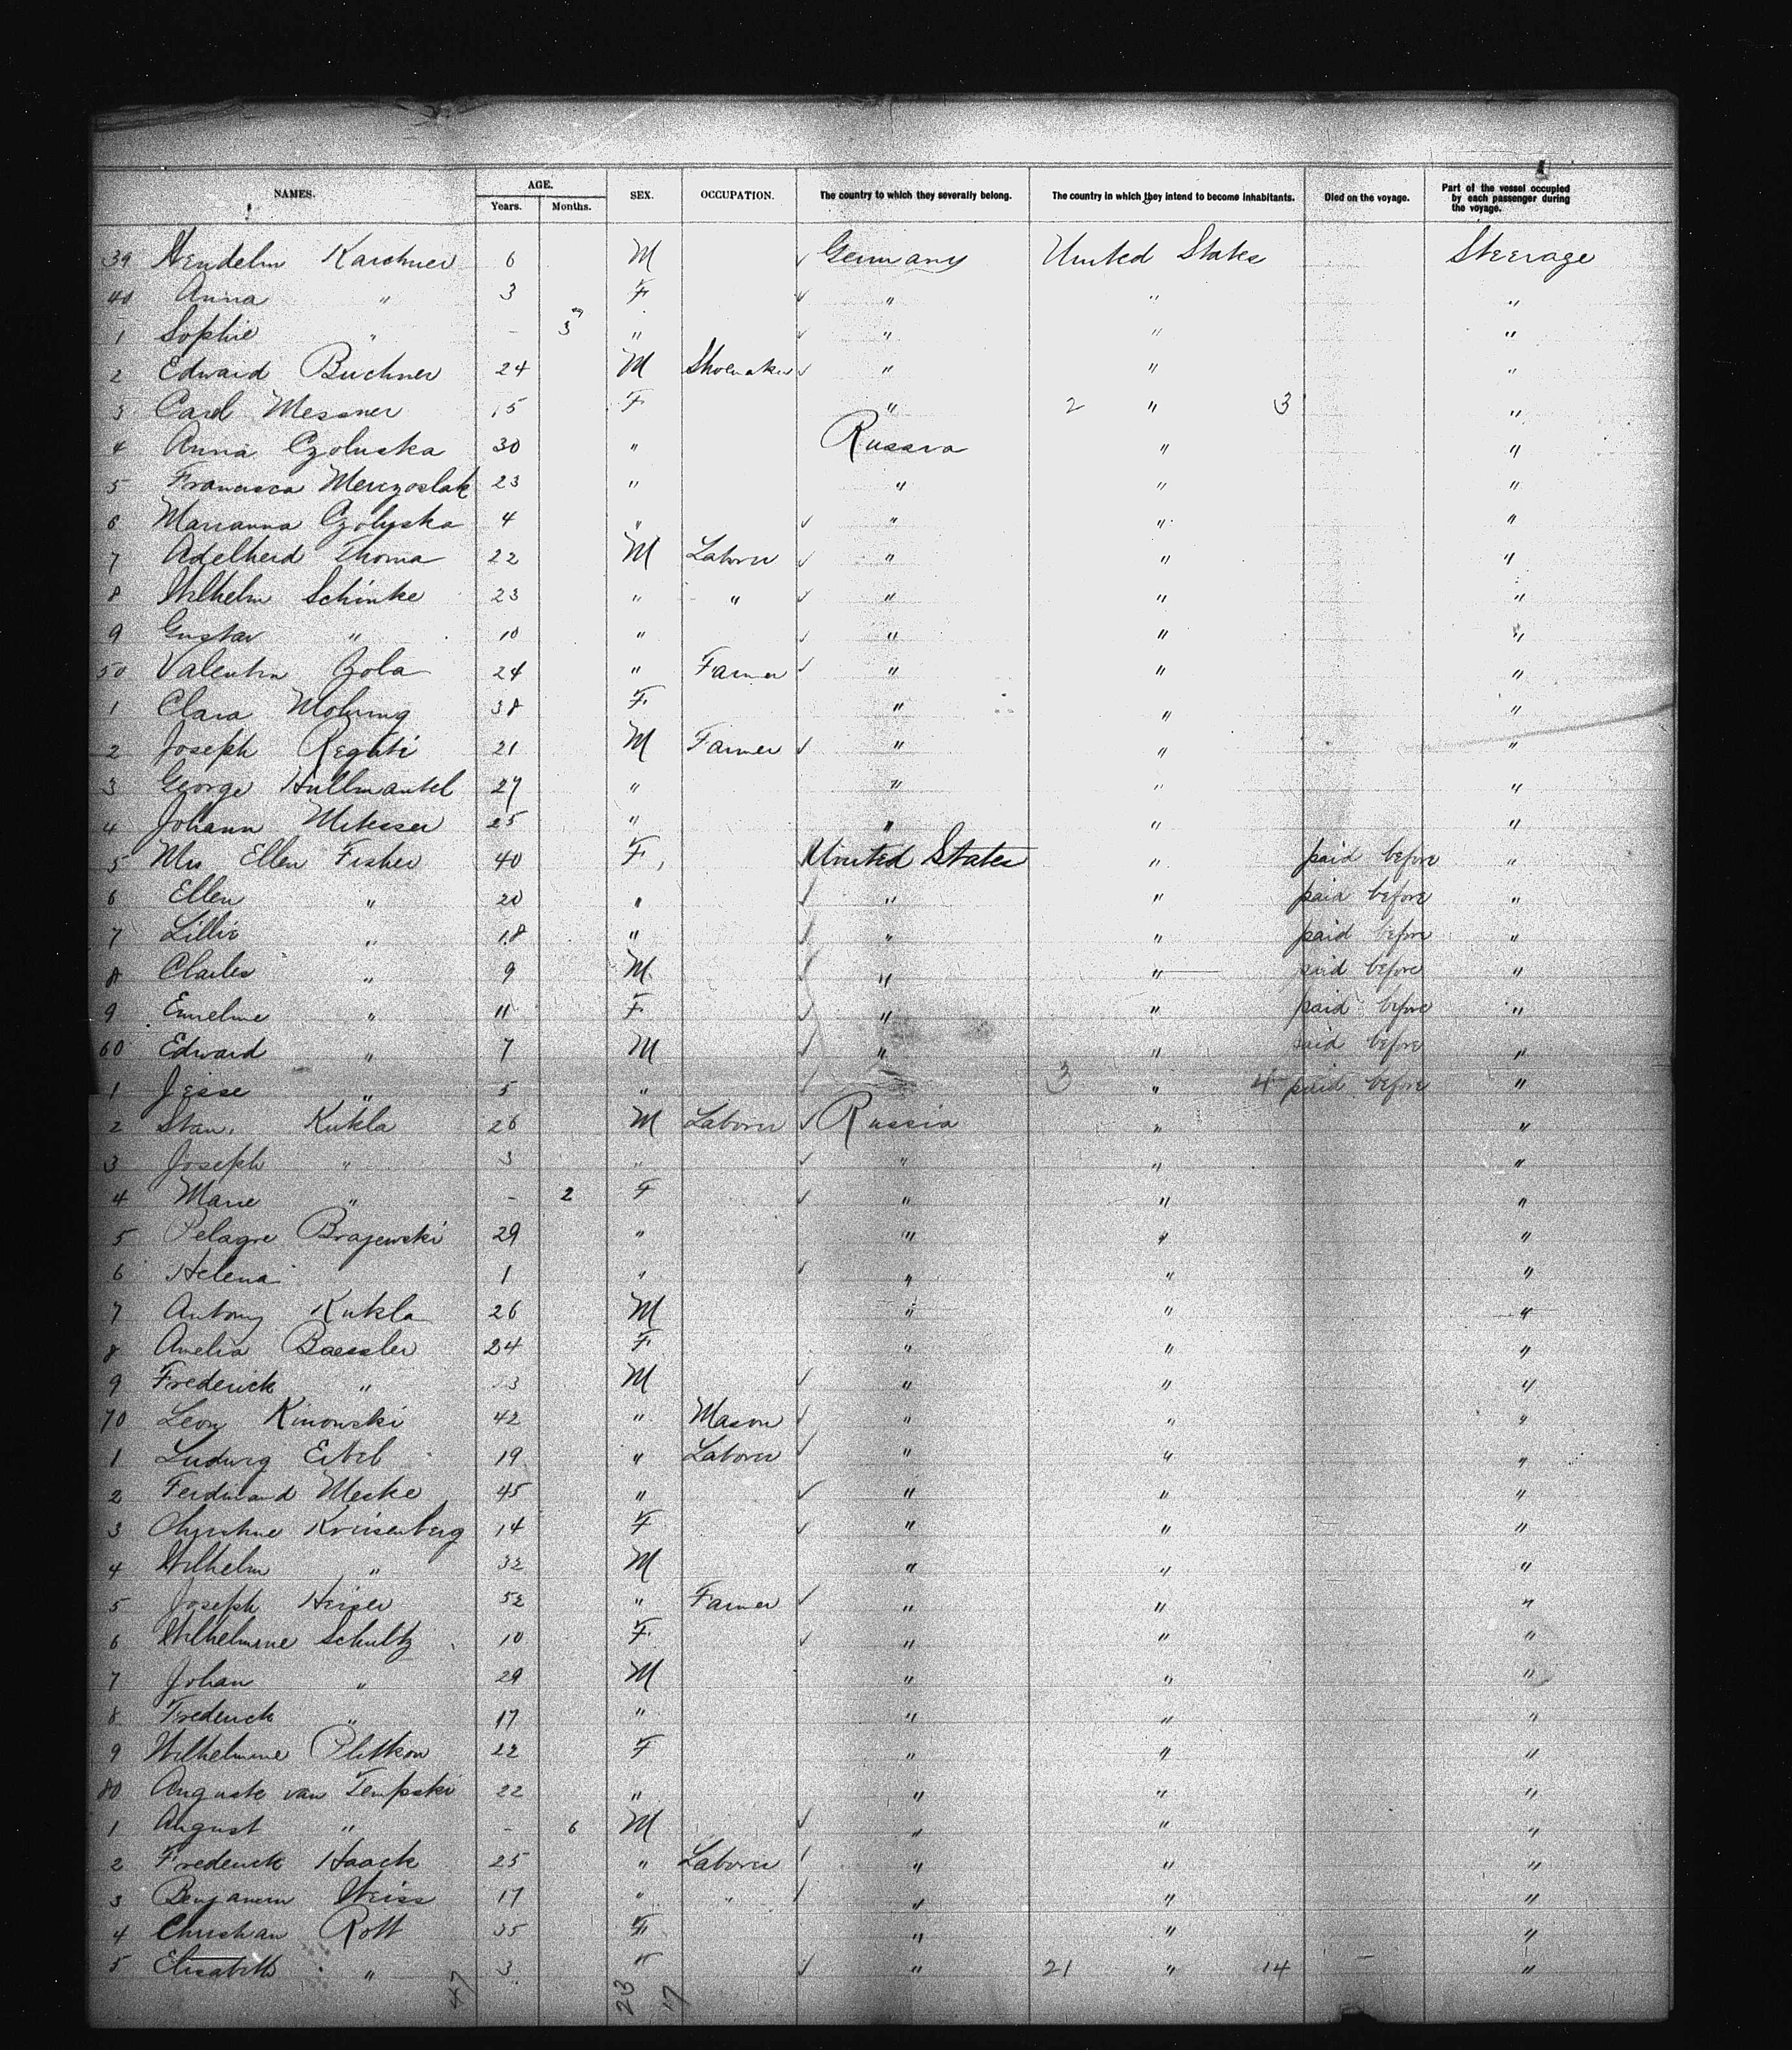 NAMES. AGE. SEX. OCCUPATION. The country to which they severally belong. The country in which they intend to become inhabitants. Died on the voyage. Part of the vessel occupied by each passenger during the voyage.
Years. Months.
39 Wendelin Karchner 6 M ✓ Germany United States Steerage
40 Anna " 3 F ✓ " " "
1 Sophie " - 3 " ✓ " " "
2 Edward Buchner 24 M Shoemaker ✓ " " "
3 Carl Messner 15 F " 2 " 3 "
4 Anna Czoluska 30 " Russia " "
5 Francisca 23 " " " "
6 Marianna 4 " ✓ " " "
7 Adelheid Thoma 22 M Laborer ✓ " " "
8 Wilhelm Schinke 23 " " ✓ " " "
9 Gustav " 10 " ✓ " " "
50 Valentin Zola 24 " Farmer ✓ " " "
1 Clara Mohring 38 F " " "
2 Joseph 21 M Farmer ✓ " " "
3 George Hullmantel 27 " " " "
4 Johann 25 " " " "
5 Mrs Ellen Fisher 40 F United States " paid before "
6 Ellen " 20 " ✓ " " paid before "
7 Lillie " 18 " ✓ " " paid before "
8 Charles " 9 M ✓ " " paid before "
9 Emeline " 11 F ✓ " " paid before "
60 Edward " 7 M ✓ " " paid before "
1 Jesse " 5 " ✓ 3 " 4 paid before "
2 Stan. Kukla 26 M Laborer ✓ Russia " "
3 Joseph " 3 " ✓ " " "
4 Marie " - 2 F ✓ " " "
5 Pelagie Brajewski 29 " " " "
6 Helena 1 " ✓ " " "
7 Antony Kukla 26 M " " "
8 Amelia Baessler 24 F " " "
9 Frederick " M ✓ " " "
70 Leon Kinowski 42 " Mason ✓ " " "
1 Ludwig 19 " Laborer ✓ " " "
2 Ferdinand Meske 45 " ✓ " " "
3 Christine 14 F ✓ " " "
4 Wilhelm " 32 M " " "
5 Joseph Heiser 52 " Farmer ✓ " " "
6 Wilhelmine Schultz 10 F ✓ " " "
7 Johan " 29 M " " "
8 Frederick " 17 " " " "
9 Wilhelmine Plittkow 22 F " " "
80 Auguste van Tempski 22 " " " "
1 August " - 6 M ✓ " " "
2 Frederick Haack 25 " Laborer ✓ " " "
3 Benjamin Weiss 17 " " ✓ " " "
4 Christian Rott 35 F " " "
5 Elisabeth " 3 " ✓ " 21 " 14 - "
47 23 17